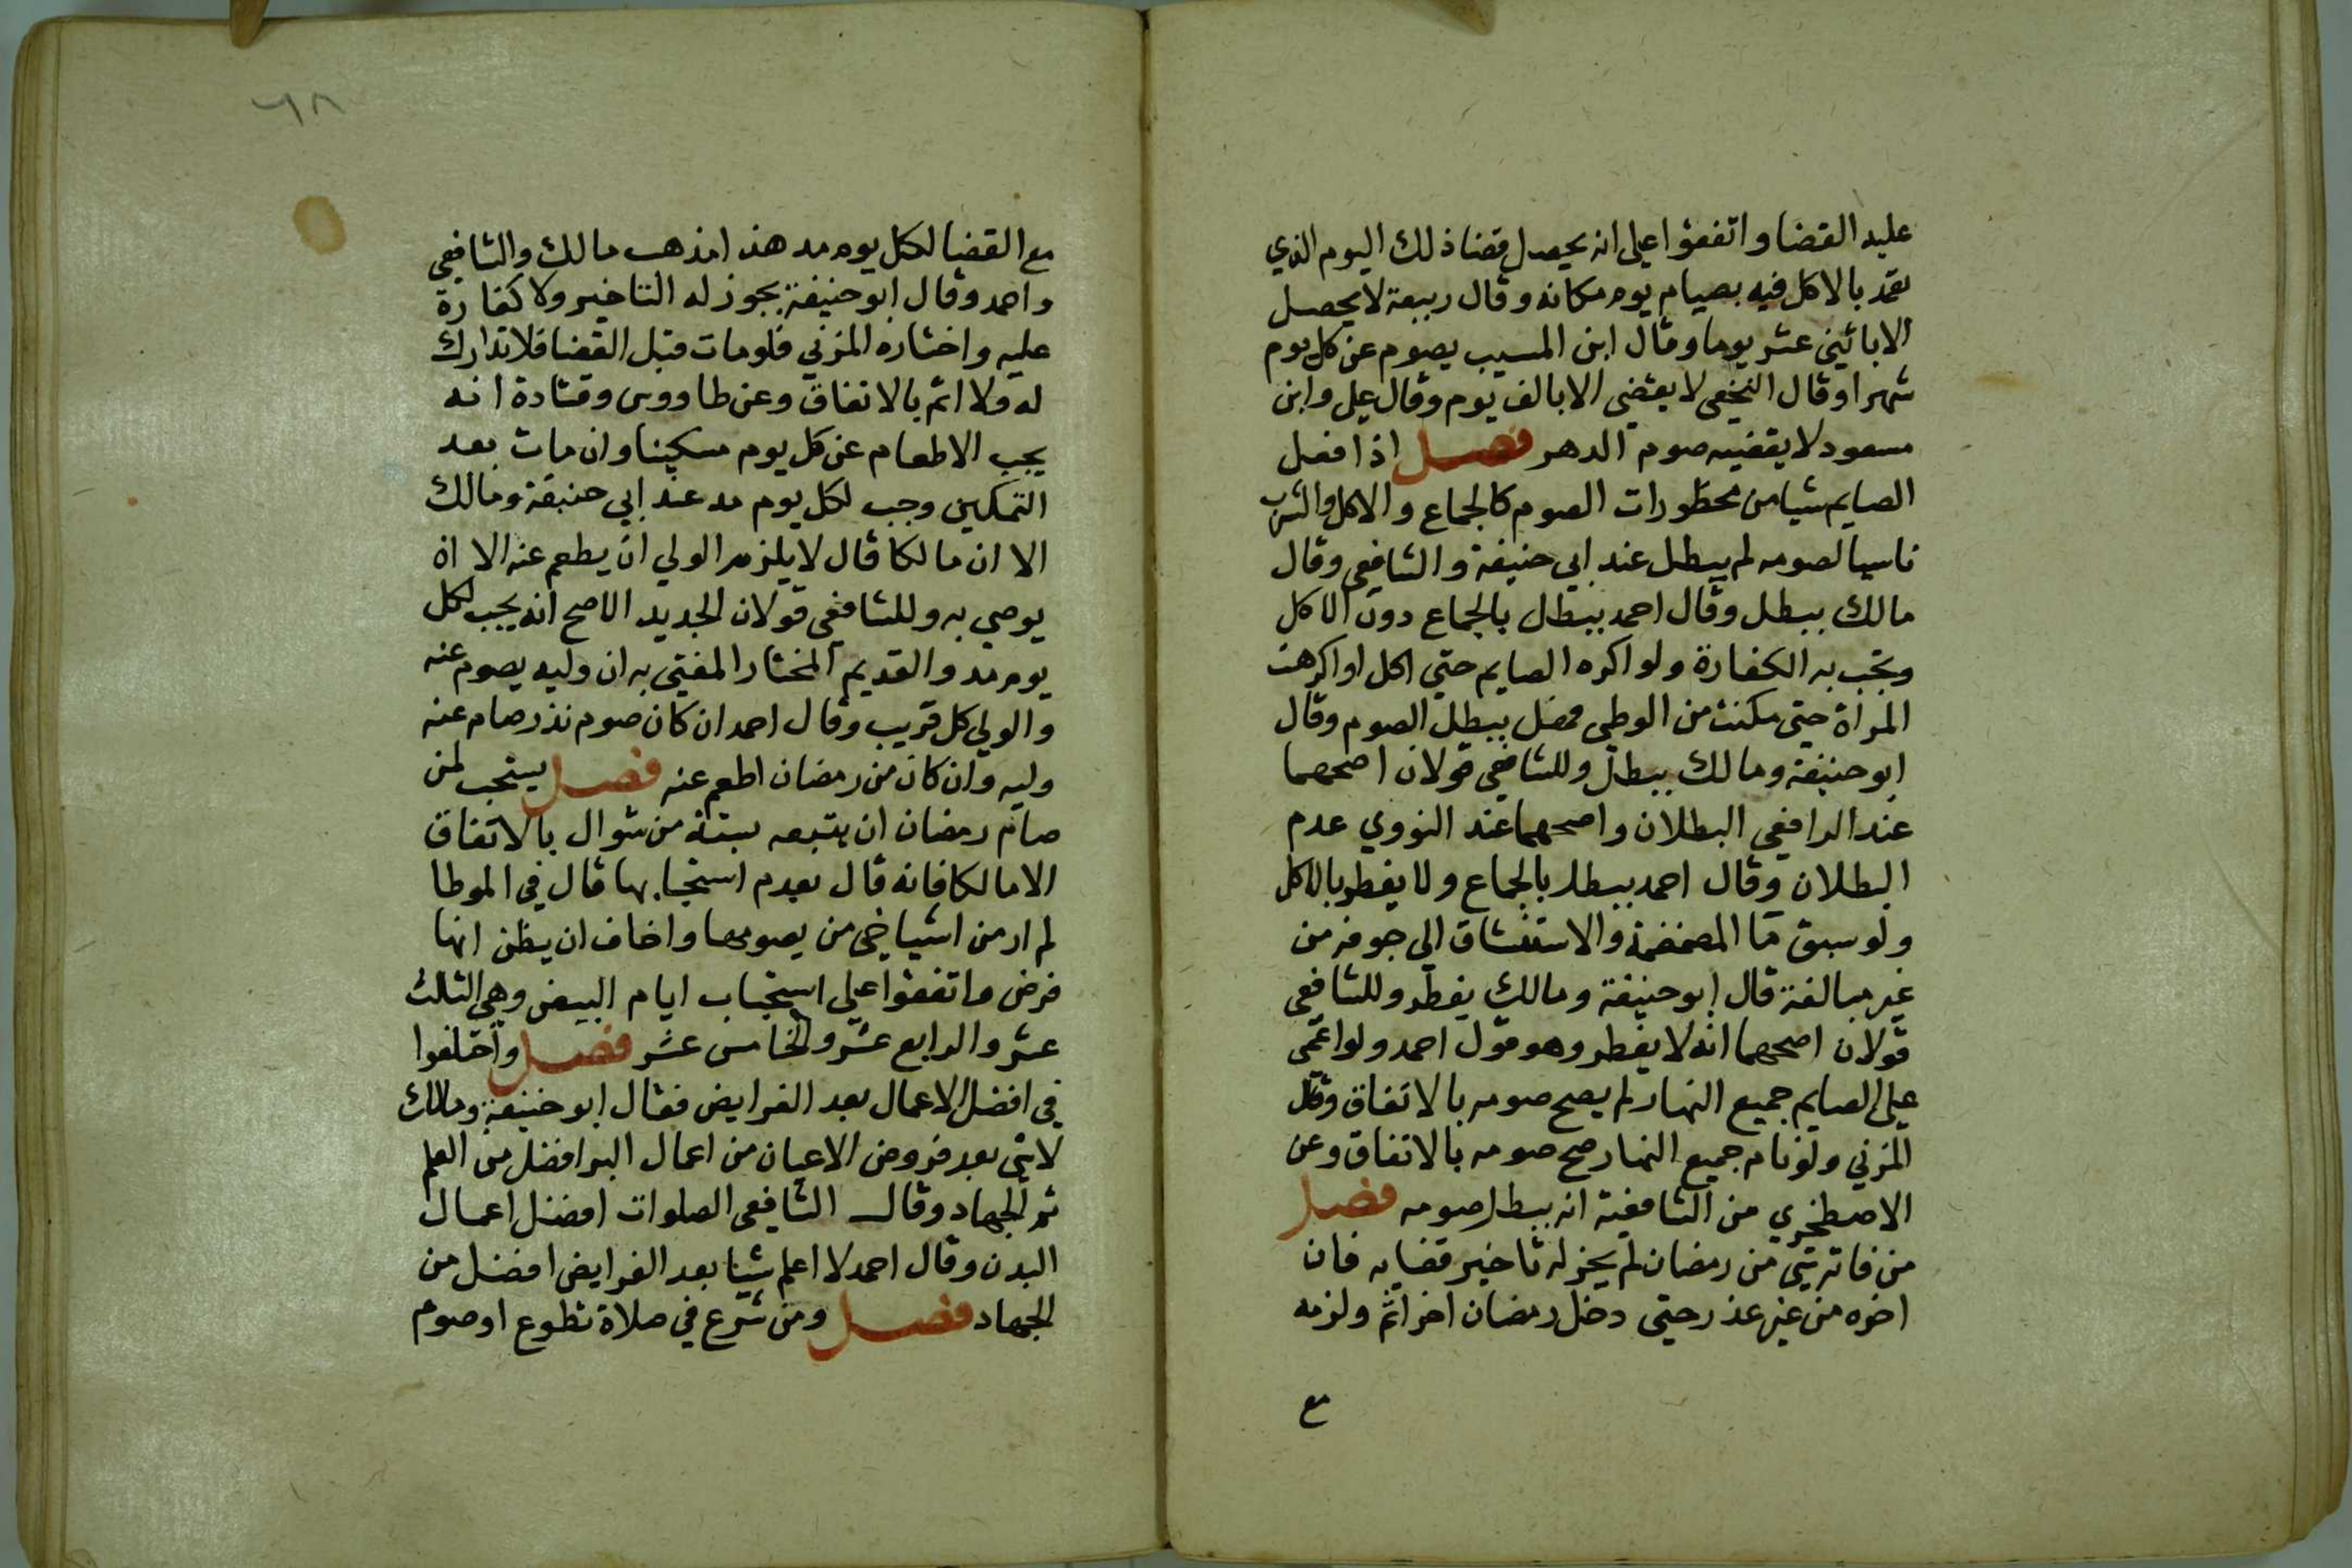 عليه القضا واتفقوا على انه يحصل قضا ذلك اليوم الذي
تعمد بالاكل فيه بصيام يوم مكانه وقال ربيعة لا يحصل
الا باثني عشر يوما وقال ابن المسيب يصوم عن كل يوم
شهرا وقال النخعي لا يقضي الا بالف يوم وقال علي وابن
مسعود لا يقضيه صوم الدهر فصل اذا فعل
الصايم شيا من محظورات الصوم كالجماع والاكل والشرب
ناسيا لصومه لم يبطل عند ابي حنيفة والشافعي وقال
مالك يبطل وقال احمد يبطل بالجماع دون الاكل
وتجب به الكفارة ولو اكره الصايم حتي اكل او اكرهت
المراة حتى مكنت من الوطى فهل يبطل الصوم وقال
ابو حنيفة ومالك يبطل وللشافعي قولان اصحهما
عند الرافعي البطلان واصحهما عند النووي عدم
البطلان وقال احمد يبطل بالجماع ولا يفطر بالاكل
ولو سبق ما المضمضة والاستنشاق الى جوفه من
غير مبالغة قال ابو حنيفة ومالك يفطر وللشافعي
قولان اصحهما انه لا يفطر وهو قول احمد ولو اغمي
على الصايم جميع النهار لم يصح صومه بالاتفاق وقال
المزني ولو نام جميع النهار صح صومه بالاتفاق وعن
الاصطخري من الشافعية انه يبطل صومه فصل
من فاته شي من رمضان لم يجز له تاخير قضايه فان
اخره من غير عذر حتي دخل رمضان اخر اثم ولزمه
مع
٦٨
مع القضا لكل يوم مد هذا مذهب مالك والشافعي
واحمد وقال ابو حنيفة يجوز له التاخير ولا كفارة
عليه واختاره المزني فلو مات قبل القضا فلا تدارك
له ولا اثم بالاتفاق وعن طاووس وقتادة انه
يجب الاطعام عن كل يوم مسكينا وان مات بعد
التمكين وجب لكل يوم مد عند ابي حنيفة ومالك
الا ان مالكا قال لا يلزم الولي ان يطعم عنه الا ان
يوصي به وللشافعي قولان الجديد الاصح انه يجب لكل
يوم مد والقديم المختار المفتي به ان وليه يصوم عنه
والولي كل قريب وقال احمد ان كان صوم نذر صام عنه
وليه وان كان من رمضان اطعم عنه فصل يستحب لمن
صام رمضان ان يتبعه بستة من شوال بالاتفاق
الا مالكا فانه قال بعدم استحبابها قال في الموطا
لم ار من اشياخي من يصومها واخاف ان يظن انها
فرض واتفقوا علي استحباب ايام البيض وهي الثالث
عشر والرابع عشر والخامس عشر فصل واختلفوا
في افضل الاعمال بعد الفرايض فقال ابو حنيفة ومالك
لا شي بعد فروض الاعيان من اعمال البر افضل من العلم
ثم الجهاد وقال الشافعي الصلوات افضل اعمال
البدن وقال احمد لا اعلم شيا بعد الفرايض افضل من
الجهاد فصل ومن شرع في صلاة تطوع او صوم